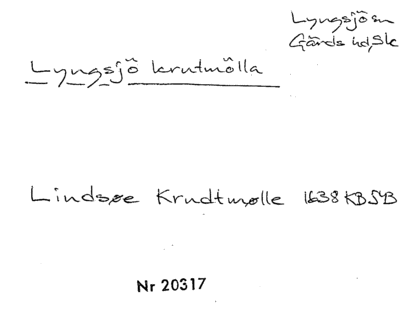 Lyngsjö sn
Gärds hd, Sk
Lyngsjö krutmölla
Lindsøe Krudtmølle 1638 KB5YB
Nr 20317